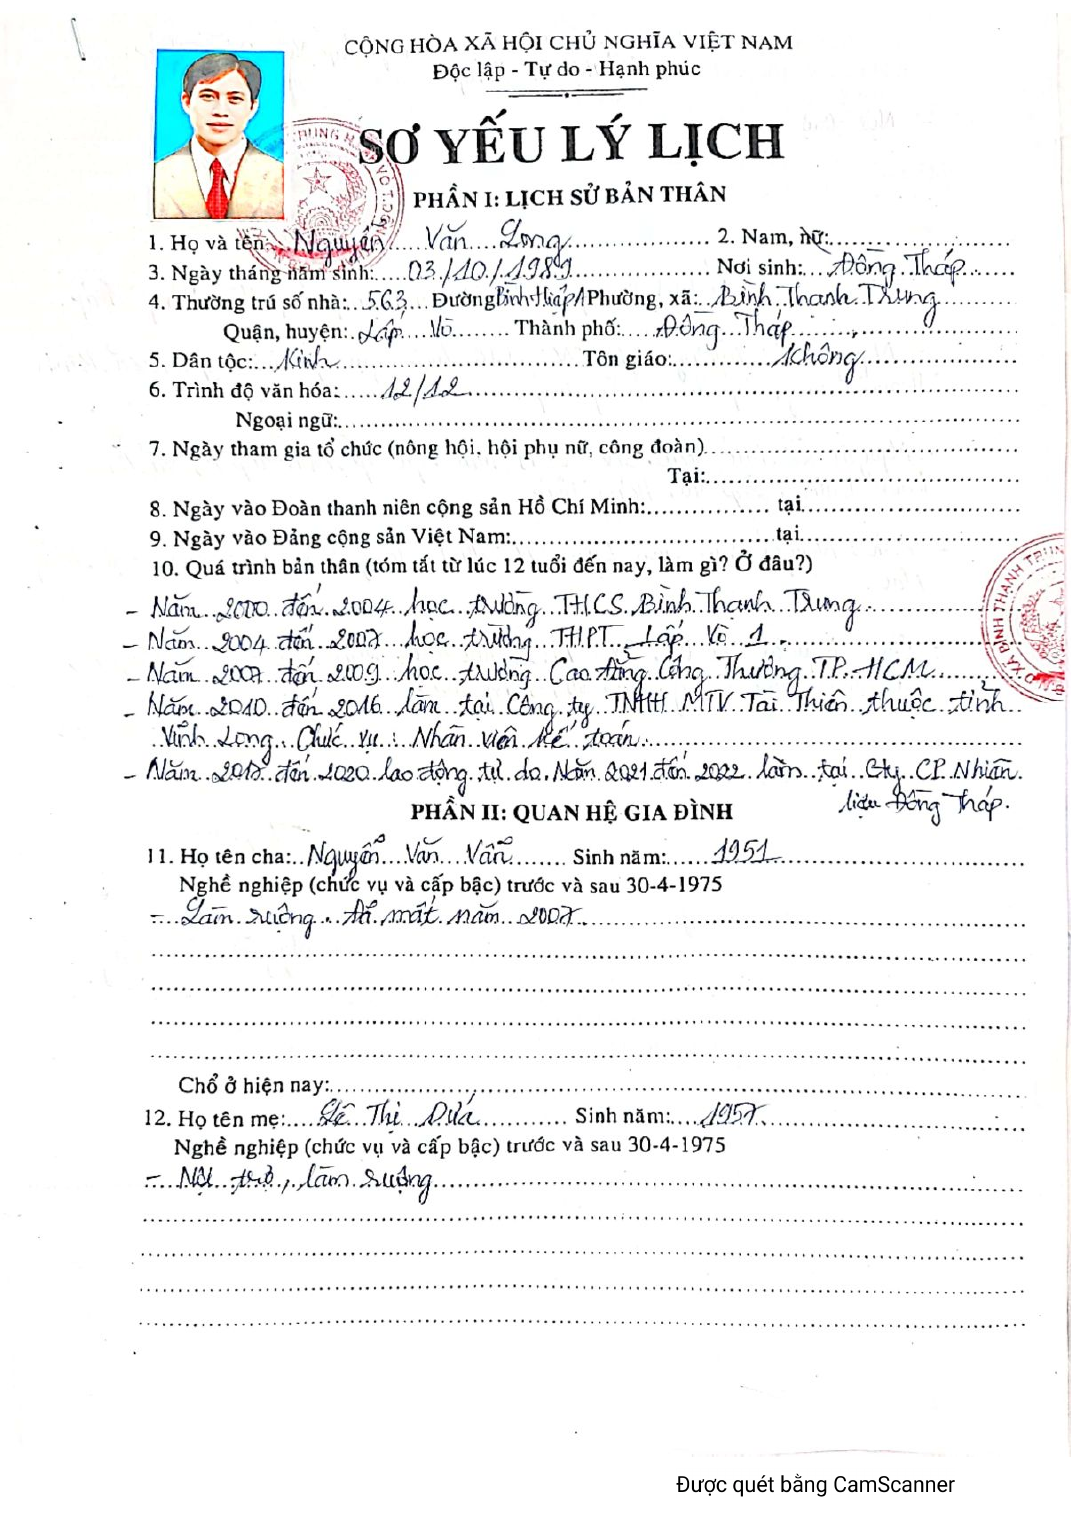 CỘNG HÒA XÃ HỘI CHỦ NGHĨA VIỆT NAM
Độc lập - Tự do - Hạnh phúc
SƠ YẾU LÝ LỊCH
PHẦN I: LỊCH SỬ BẢN THÂN
1. Họ và tên: Nguyễn Văn Long 2. Nam, nữ:
3. Ngày tháng năm sinh: 03/10/1989 Nơi sinh: Đồng Tháp
4. Thường trú số nhà: 563 Đường Bình Hiệp A Phường, xã: Bình Thạnh Trung
Quận, huyện: Lấp Vò Thành phố: Đồng Tháp
5. Dân tộc: Kinh Tôn giáo: Không
6. Trình độ văn hóa: 12/12
Ngoại ngữ:
7. Ngày tham gia tổ chức (nông hội, hội phụ nữ, công đoàn)
Tại:
8. Ngày vào Đoàn thanh niên cộng sản Hồ Chí Minh: tại
9. Ngày vào Đảng cộng sản Việt Nam: tại
10. Quá trình bản thân (tóm tắt từ lúc 12 tuổi đến nay, làm gì? Ở đâu?)
- Năm 2000 đến 2004 học trường THCS Bình Thạnh Trung
- Năm 2004 đến 2007 học trường THPT Lấp Vò 1
- Năm 2007 đến 2009 học trường Cao Đẳng Công Thương TP. HCM
- Năm 2010 đến 2016 làm tại Công ty TNHH MTV Tài Thiên thuộc tỉnh
Vĩnh Long. Chức vụ: Nhân viên kế toán
- Năm 2017 đến 2020 lao động tự do. Năm 2021 đến 2022 làm tại Cty CP Nhiên
liệu Đồng Tháp.
PHẦN II: QUAN HỆ GIA ĐÌNH
11. Họ tên cha: Nguyễn Văn Vẫn Sinh năm: 1951
Nghề nghiệp (chức vụ và cấp bậc) trước và sau 30-4-1975
- Làm ruộng. Đã mất năm 2007
Chổ ở hiện nay:
12. Họ tên mẹ: Lê Thị Dứa Sinh năm: 1957
Nghề nghiệp (chức vụ và cấp bậc) trước và sau 30-4-1975
- Nội trợ, làm ruộng
Được quét bằng CamScanner